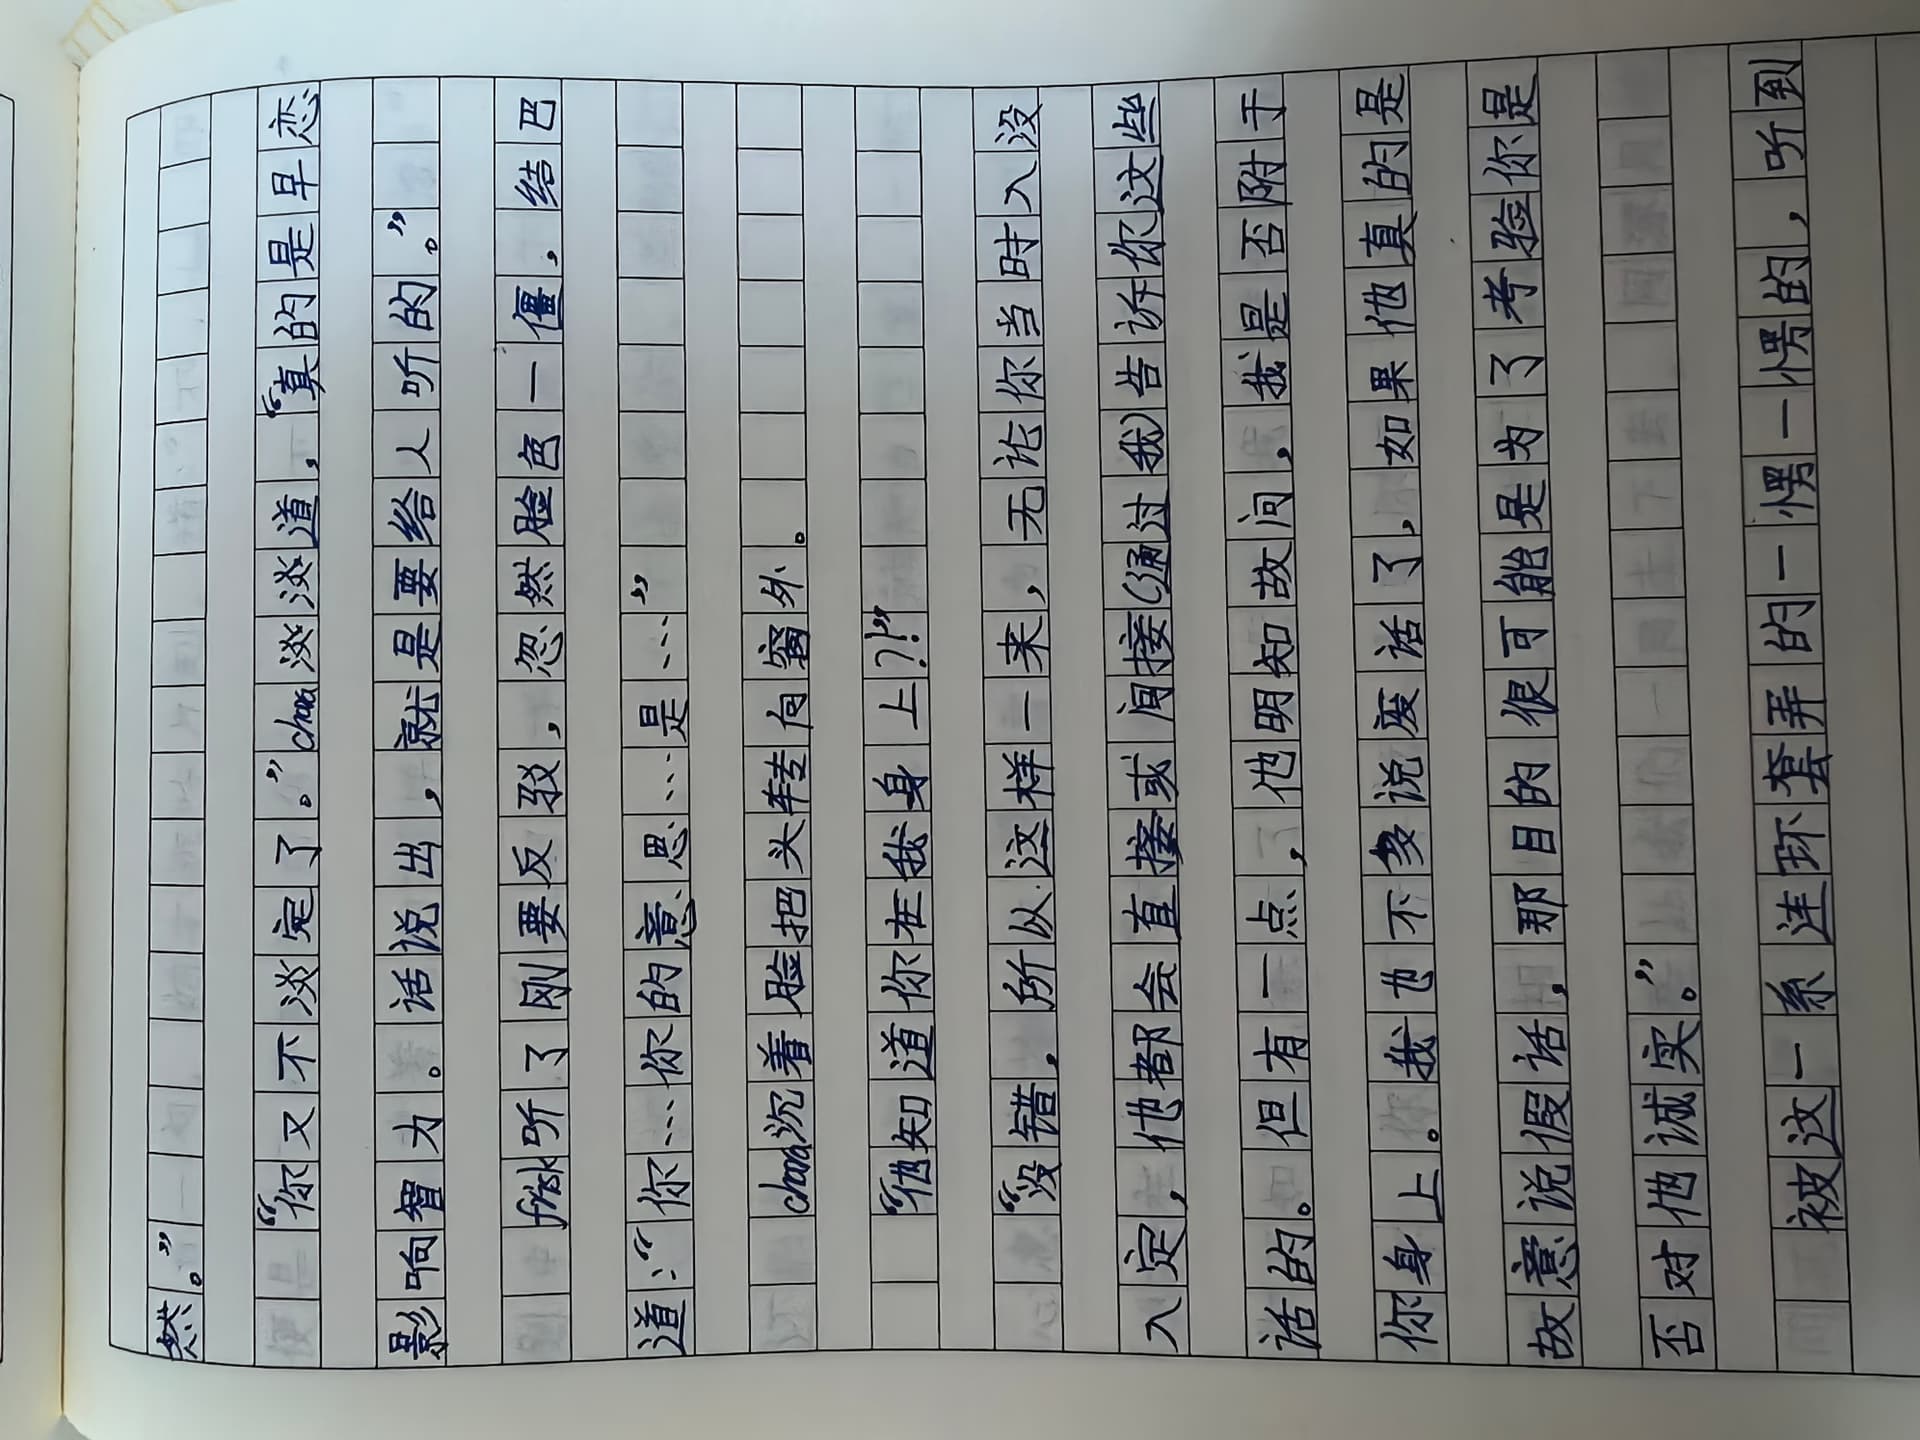 然。”
“你又不淡定了。”chaos淡淡道，“真的是早恋
影响智力。话说出，就是要给人听的。”
frisk听了刚要反驳，忽然脸色一僵，结巴
道：“你……你的意思……是……”
chaos沉着脸把头转向窗外。
“他知道你在我身上？！”
“没错，所以这样一来，无论你当时入没
入定，他都会直接或间接（通过我）告诉你这些
话的。但有一点，他明知故问，我是否附于
你身上。我也不多说废话了，如果他真的是
故意说假话，那目的很可能是为了考验你是
否对他诚实。”
被这一系连环套弄的一愣一愣的，听到